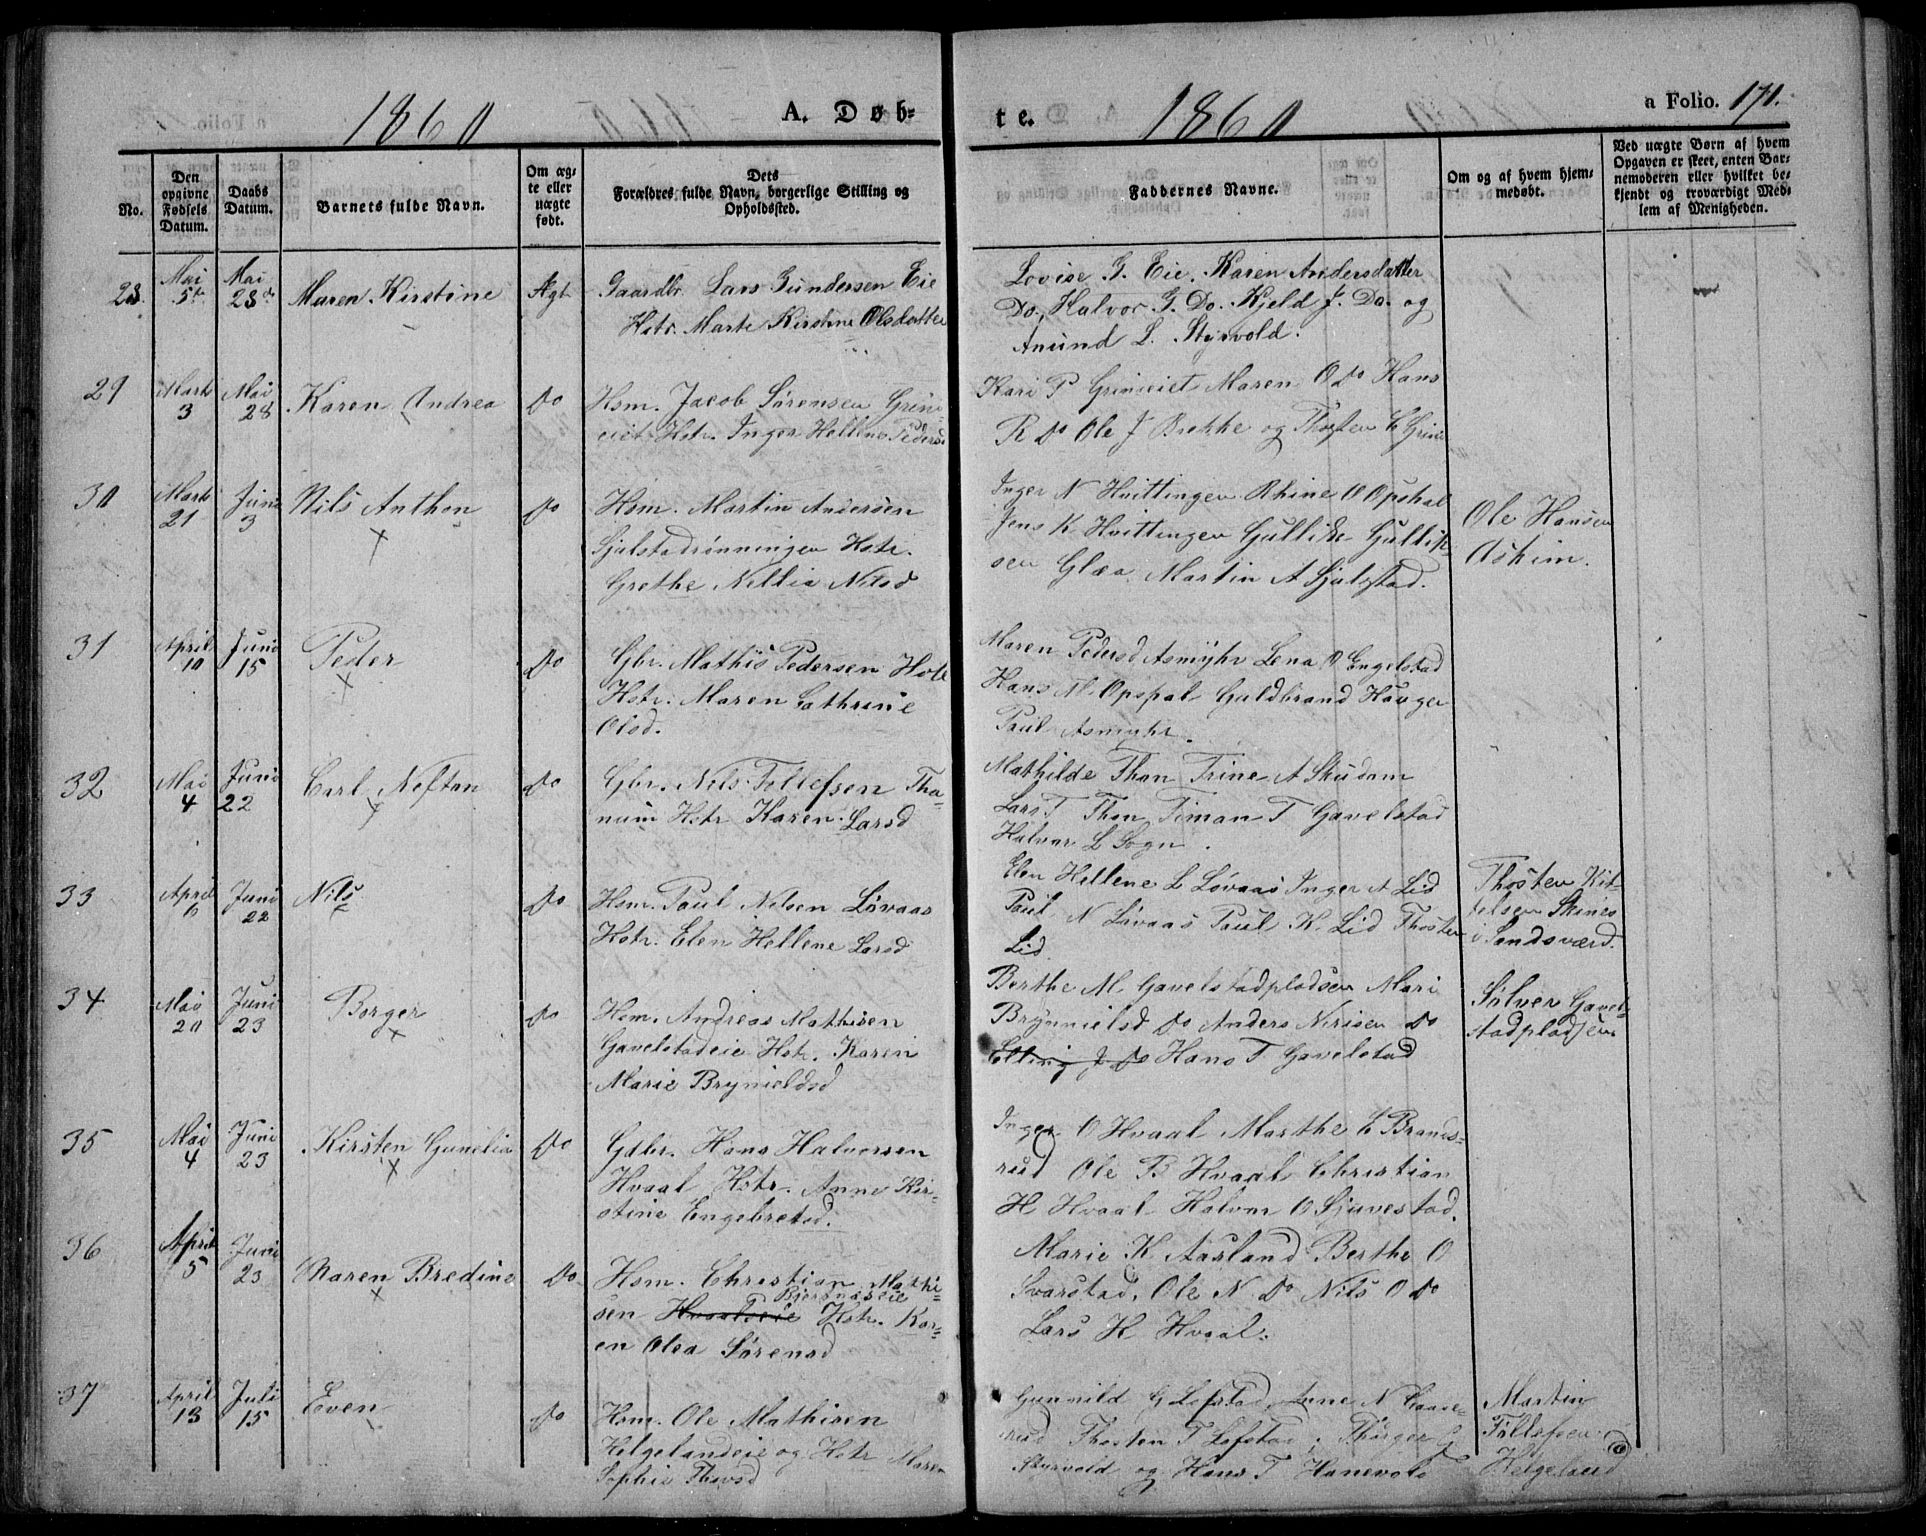 1860 A. Døb-
te. 1860 a Folio. 171.
No.
Den
opgivne
Fødsels
Datum.
Daabs
Datum.
Barnets fulde Navn.
Om æg-
te eller
uægte
født.
Dets
Forældres fulde Navn, borgerlige Stilling og
Opholdssted.
Faddernes Navne.
Om og af hvem hjem-
medøbt.
Ved uægte Børn af hvem
Opgaven er skeet, enten Bar-
nemoderen eller hvilket be-
kjendt og troværdigt Med-
lem af Menigheden.
28. Mai 5te Mai 28de Maren Kirstine Ægt
Gaardbr. Lars Gundersen Eie
Hstr. Marte Kirstine Olsdatter
Lovise G. Eie, Karen Andersdatter
Do, Halvor G. Do. Kjeld J. Do. og
Anund L. Styrvold.
29 Marts 3 Mai 28 Karen Andrea Do
Hsm. Jacob Sørensen Grin-
eiet Hstr. Inger Hellene Pedersd
Kari P Grineiet Maren O Do Hans
R Do Ole J Brekke og Thosten C Grine
30 Marts 21 Juni 3 Nils Anthon Do
Hsm. Martin Andersen
Sjulstadrønningen Hstr.
Grethe Nellia Nilsd
Inger N Hvittingen Rhine O Opshal
Jens K Hvittingen Gullik Gullik-
sen Glaa Martin A Sjulstad.
Ole Hansen
Askim.
31 April 10 Juni 15 Peder Do
Gbr. Mathis Pedersen Hote
Hstr. Maren Cathrine
Olsd.
Maren Pedersd Asmyhr Lena O Engelstad
Hans M. Opsal Guldbrand Hauger
Paul Asmyhr.
32 Mai 4 Juni 22 Carl Neftan Do
Gbr. Nils Tollefsen Tha-
num Hstr Karen Larsd
Mathilde Thon Trine A Skudam
Lars T Thon Timan T Gavelstad
Halvor L Sogn.
33 April 6 Juni 22 Nils Do
Hsm. Paul Nilsen Løvaas
Hstr. Elen Hellene Larsd
Elen Hellene L Løvaas Inger A Lid
Paul N Løvaas Paul K. Lid Thosten
Lid
Thosten Kit-
telsen Skines
i Sandsværd.
34 Mai 20 Juni 23 Borger Do
Hsm. Andreas Mathisen
Gavelstadeie Hstr. Karen
Marie Brynieldsd
Berthe M. Gavelstadpladsen Mari
Brynnielsd Do Anders Nirisen Do
Elling J Do Hans T Gavelstad
Sølver Gavel-
stadpladsen
35 Mai 4 Juni 23 Kirsten Gunelia Do
Gdbr. Hans Halvorsen
Hvaal Hstr. Anne Kir-
stine Engebretsd.
Inger O Hvaal Marthe E Brands-
rud Ole B Hvaal Christian
H Hvaal Halvor O Sjuvestad.
36 April 5 Juni 23 Maren Bredine Do
Hsm. Christian Mathi-
Bjersnæseie
sen Hvaaleie Hstr. Kar-
en Olea Sørensd
Marie K Aasland Berthe O
Svarstad, Ole N Do Nils O Do
Lars H Hvaal.
37 April 13 Juli 15 Even Do
Hsm. Ole Mathisen
Helgelandeie og Hstr Maren
Sophie Thovsd
Gunnild G Lofstad, Anne N Haave-
rud Thosten T Lofstad, Thorger G
Styrvold og Hans T Hanevold
Martin
Tollefsen
Helgeland